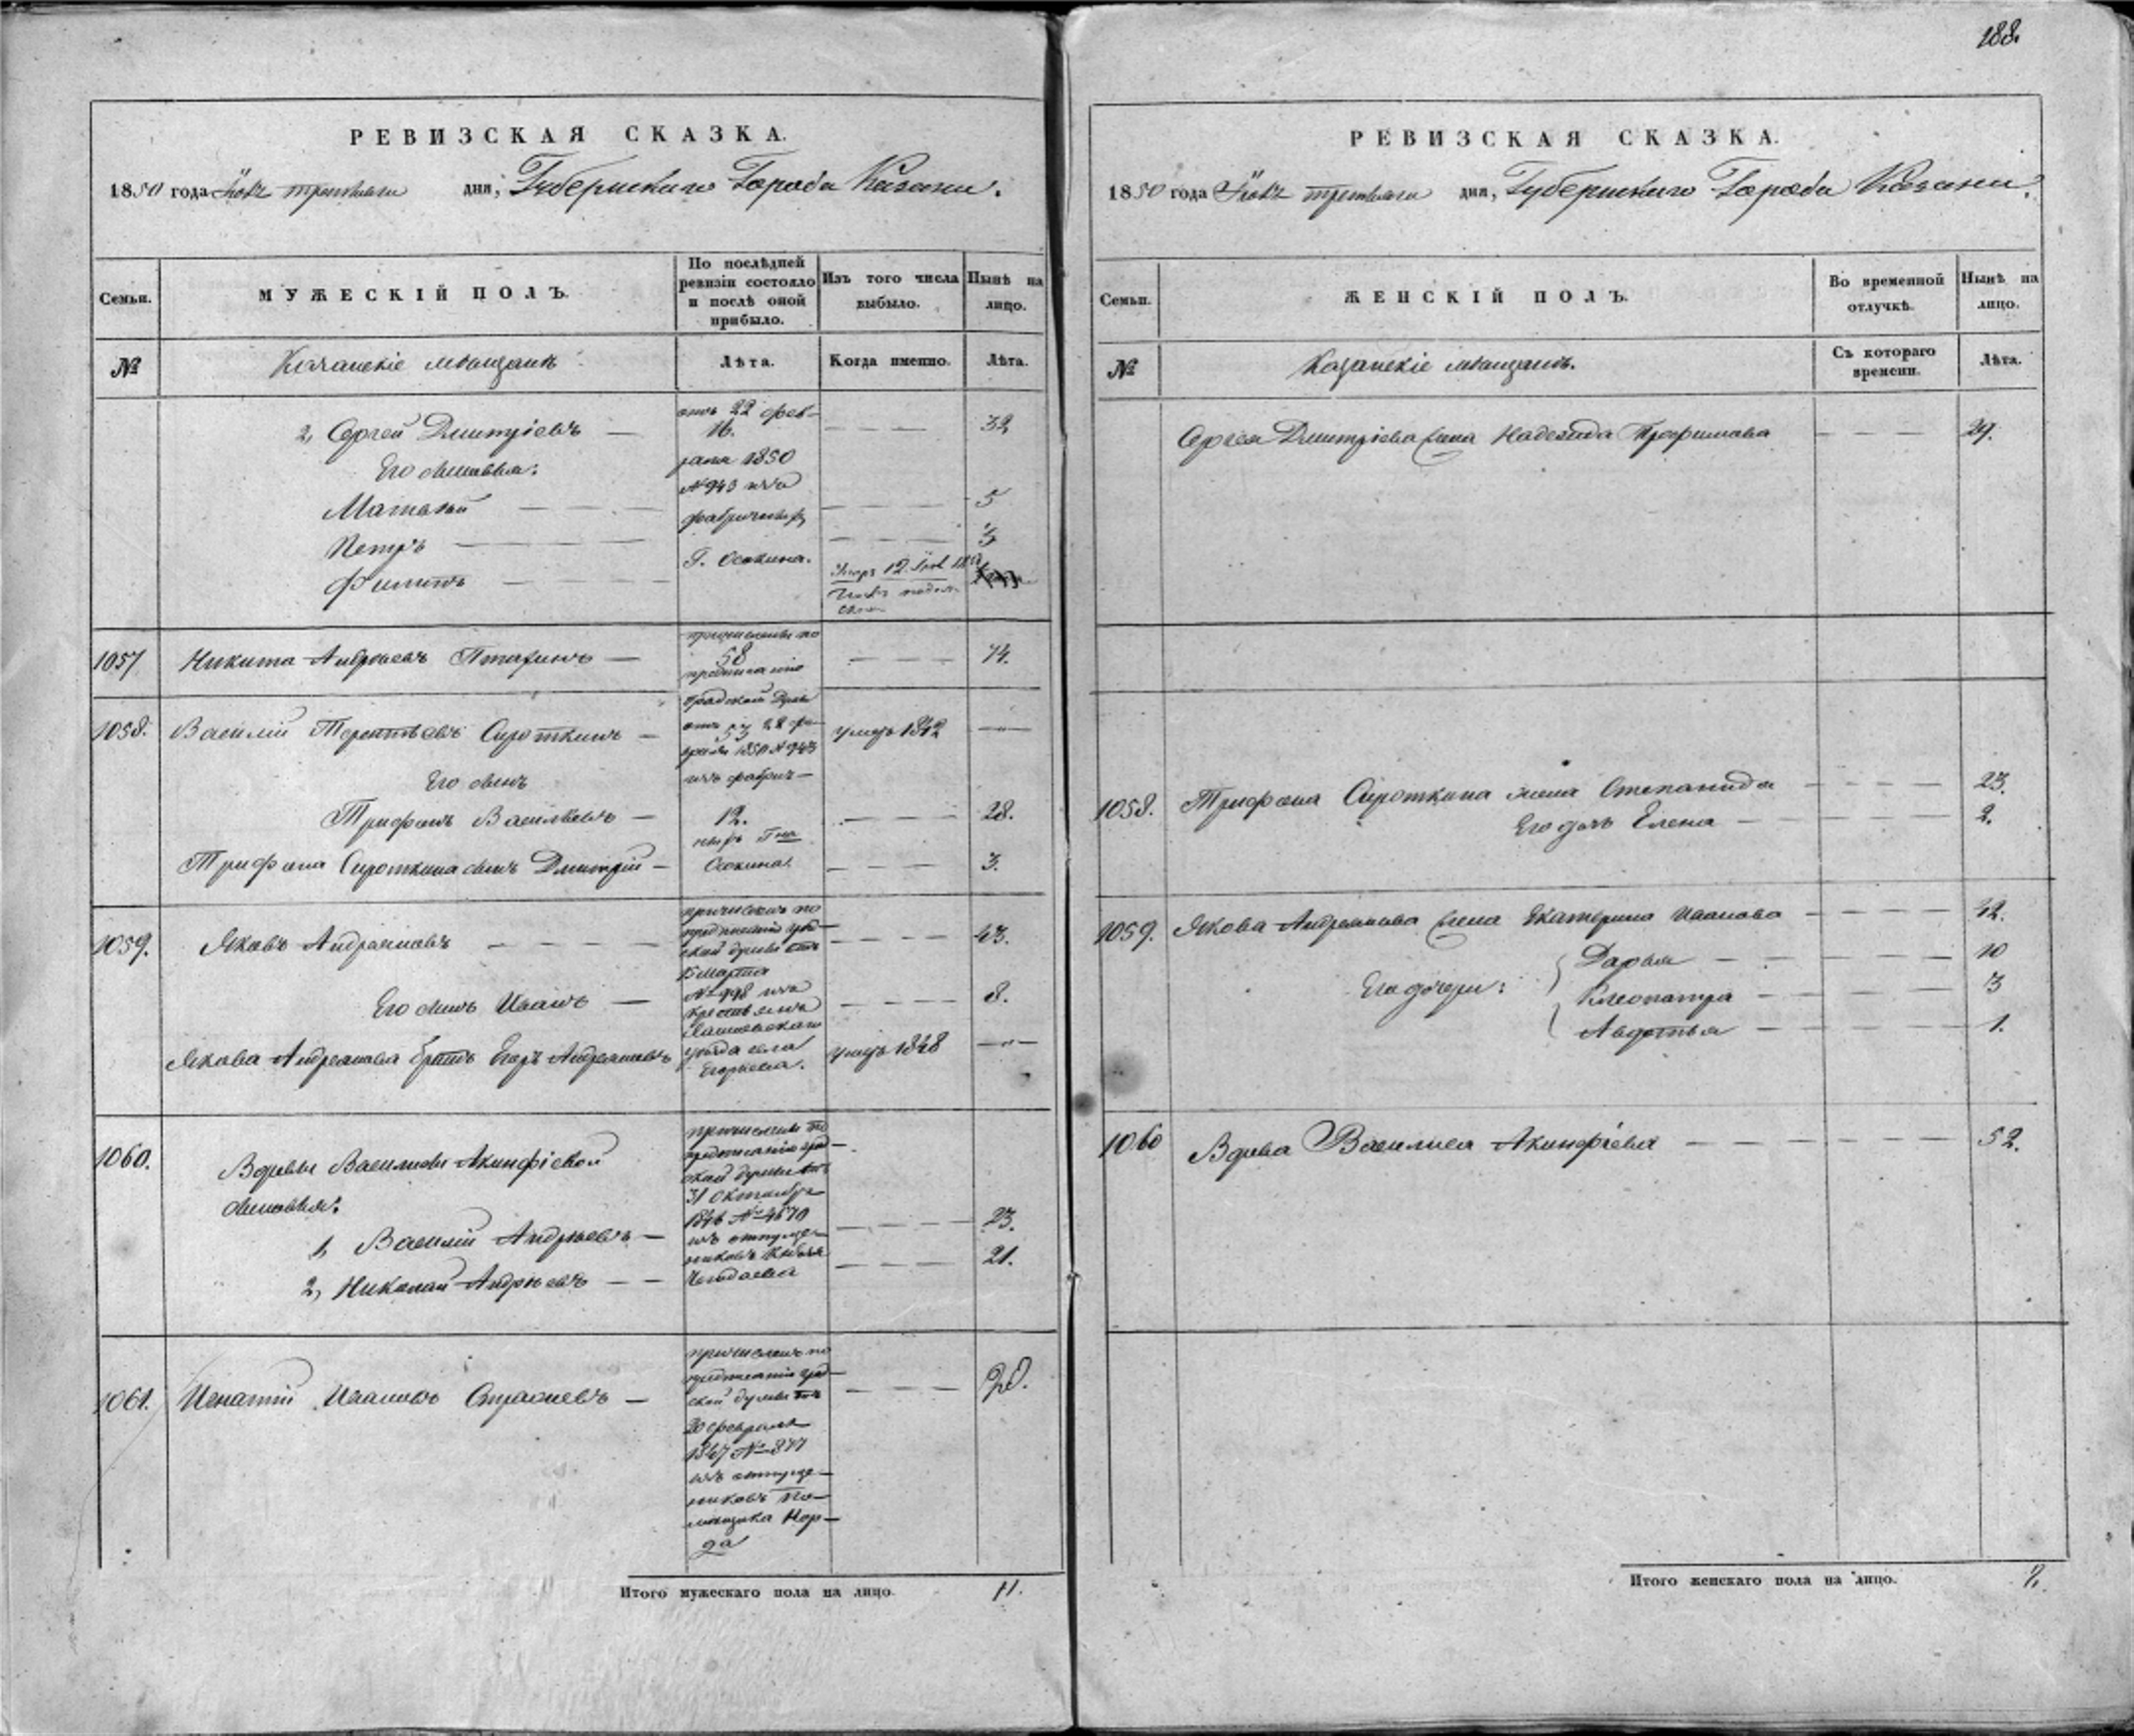 188.
РЕВИЗСКАЯ СКАЗКА.
1850 года третьяго дня, Губернскаго Города Казани.
Семьи.
МУЖЕСКІЙ ПОЛЪ.
По послѣдней ревизіи состояло и послѣ оной прибыло.
Изъ того числа выбыло.
Нынѣ на лицо.
№
Казанскіе мѣщанѣ
Лѣта.
Когда именно.
Лѣта.
2, Сергей Дмитріевъ —
отъ 22 фев-
16.
32
Его сыновья:
раля 1850
№ 943 изъ
Матвѣй
фабричныхъ
5
Петръ
3
Г. Осокина.
Филипъ
1057
Никита Андреевъ
58
74.
1058.
Василій Терентьевъ Сироткинъ —
53
умеръ 1842
Его сынъ
изъ фабрич-
Трифонъ Васильевъ —
12.
28.
Трифона Сироткина сынъ Дмитрій —
Осокина.
3.
1059.
Яковъ Андреяновъ
причисленъ по
предписанію град-
ской думы отъ
15 Марта
43.
Его сынъ Иванъ —
№ 998 изъ
крестьянъ
8.
Якова Андреянова братъ Егоръ Андреяновъ
уѣзда села
умеръ 1848
1060.
Вдовы Василисы Акинфіевой
сыновья:
причислены по
предписанію град-
ской думы отъ
31 Октября
1846 № 4670
изъ отпуще-
никовъ Князя
1, Василій Андреевъ —
23.
2, Николай Андреевъ — —
21.
1061.
Игнатій Ивановъ
причисленъ по
предписанію град-
ской думы отъ
20 февраля
1847 № 877
изъ отпуще-
никовъ по-
мѣщика Нор-
да
20.
Итого мужескаго пола на лицо. 11.
РЕВИЗСКАЯ СКАЗКА.
1850 года третьяго дня, Губернскаго Города Казани.
Семьи.
ЖЕНСКІЙ ПОЛЪ.
Во временной отлучкѣ.
Нынѣ на лицо.
№
Казанскіе мѣщанѣ.
Съ котораго времени.
Лѣта.
Сергея Дмитріева жена Надежда Трофимова 29.
1058. Трифона Сироткина жена Степанида 23.
Его дочь Елена 2.
1059. Якова Андреянова жена Екатерина Иванова 42.
Дарья 10
Его дочери: Клеопатра 3
Авдотья 1.
1060 Вдова Василиса Акинфіева 52.
Итого женскаго пола на лицо.